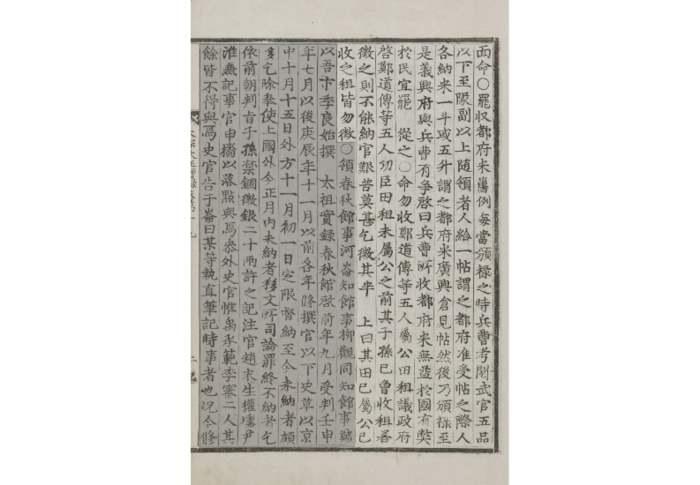 面命○罷收都府米舊例每當頒祿之時兵曹考閱武官五品
以下至隊副以上隨領者人給一帖謂之都府准受帖之際人
各納米一斗或五升謂之都府米廣興倉見帖然後乃頒祿至
是義興府與兵曹有爭啓曰兵曹所收都府米無益於國有弊
於民宜罷 從之○命勿收鄭道傳等五人屬公田租議政府
啓鄭道傳等五人功臣田租未屬公之前其子孫已曾收租若
徵之則不能納官艱苦莫甚乞徵其半 上曰其田已屬公已
收之租皆勿徵○領春秋館事河崙知館事柳觀同知館事鄭
以吾卞季良始撰 太祖實錄春秋館啓前年九月受判壬申
年七月以後庚辰年十一月以前各年修撰官以下史草以京
中十月十五日外方十一月初一日定限督納至今未納者頗
多乞除奉使上國外今正月內未納者移文所司論罪終不納者乞
依前朝判旨子孫禁錮徵銀二十兩許之記注官趙末生權壎尹
淮兼記事官申檣以落點與焉參外史官惟禹承範李審二人其
餘皆不得與焉史官告于崙曰某等執直筆記時事者也況今修